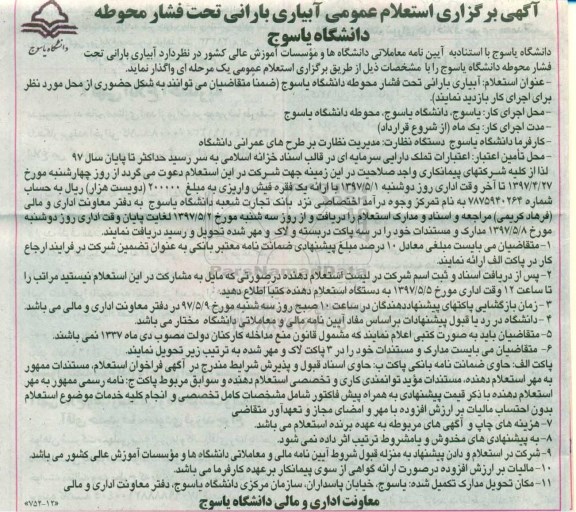 آگهی برگزاری استعلام عمومی آبیاری بارانی تحت فشار محوطه
دانشگاه یاسوج
دانشگاه یاسوج
دانشگاه یاسوج با استنادبه آیین نامه معاملاتی دانشگاه ها و مؤسسات آموزش عالی کشور در نظردارد آبیاری بارانی تحت
فشار محوطه دانشگاه یاسوج را با مشخصات ذیل از طریق برگزاری استعلام عمومی یک مرحله ای واگذار نماید.
-عنوان استعلام: آبیاری بارانی تحت فشار محوطه دانشگاه یاسوج (ضمنا متقاضیان می توانند به شکل حضوری از محل مورد نظر
برای اجرای کار بازدید نمایند).
-محل اجرای کار: یاسوج، دانشگاه یاسوج، محوطه دانشگاه یاسوج
-مدت اجرای کار: یک ماه (از شروع قرارداد)
-کارفرما دانشگاه یاسوج دستگاه نظارت: مدیریت نظارت بر طرح های عمرانی دانشگاه
-محل تأمین اعتبار: اعتبارات تملک دارایی سرمایه ای در قالب اسناد خزانه اسلامی به سر رسید حداکثر تا پایان سال ۹۷
لذا از کلیه شرکتهای پیمانکاری واجد صلاحیت در این زمینه جهت شرکت در این استعلام دعوت می گردد از روز چهارشنبه مورخ
۱۳۹۷/۴/۲۷ تا آخر وقت اداری روز دوشنبه ۱۳۹۷/۵/۱ با ارائه یک فقره فیش واریزی به مبلغ ۲۰۰۰۰۰ (دویست هزار) ریال به حساب
شماره ۷۸۷۵۹۴۰۲۶۴ به نام تمرکز وجوه درآمد اختصاصی نزد بانک تجارت شعبه دانشگاه یاسوج به دفتر معاونت اداری و مالی
(فرهاد کریمی) مراجعه و اسناد و مدارک استعلام را دریافت و از روز سه شنبه مورخ ۱۳۹۷/۵/۲ لغایت پایان وقت اداری روز دوشنبه
مورخ ۱۳۹۷/۵/۸ مدارک و مستندات خود را در سه پاکت دربسته و لاک و مهر شده تحویل و رسید دریافت نمایند.
۱- متقاضیان می بایست مبلغی معادل ۱۰ درصد مبلغ پیشنهادی ضمانت نامه معتبر بانکی به عنوان تضمین شرکت در فرایند ارجاع
کار در پاکت الف ارائه نمایند.
۲- پس از دریافت اسناد و ثبت اسم شرکت در لیست استعلام دهنده درصورتی که مایل به مشارکت در این استعلام نیستید مراتب را
تا ساعت ۱۲ وقت اداری مورخ ۱۳۹۷/۵/۵ به دستگاه استعلام دهنده کتبا اطلاع دهید.
۳- زمان بازگشایی پاکتهای پیشنهاددهندگان در ساعت ۱۰ صبح روز سه شنبه مورخ ۹۷/۵/۹ در دفتر معاونت اداری و مالی می باشد.
۴- دانشگاه در رد یا قبول پیشنهادات براساس مفاد آیین نامه مالی و معاملاتی دانشگاه مختار می باشد.
۵- متقاضیان باید به صورت کتبی اعلام نمایند که مشمول قانون منع مداخله کارکنان دولت مصوب دی ماه ۱۳۳۷ نمی باشند.
۶- متقاضیان می بایست مدارک و مستندات خود را در ۳ پاکت لاک و مهر شده به ترتیب زیر تحویل نمایند.
پاکت الف: حاوی ضمانت نامه بانکی پاکت ب: حاوی اسناد قبول و پذیرش شرایط مندرج در آگهی فراخوان استعلام، مستندات ممهور
به مهر استعلام دهنده، مستندات مؤید توانمندی کاری و تخصصی استعلام دهنده و سوابق مربوط پاکت ج: نامه رسمی ممهور به مهر
استعلام دهنده با ذکر قیمت پیشنهادی به همراه پیش فاکتور شامل مشخصات کامل تخصصی و انجام کلیه خدمات موضوع استعلام
بدون احتساب مالیات بر ارزش افزوده با مهر و امضای مجاز و تعهدآور متقاضی
۷- هزینه های چاپ و آگهی های مربوطه به عهده برنده استعلام می باشد.
۸- به پیشنهادی های مخدوش و یامشروط ترتیب اثر داده نمی شود.
۹- شرکت در استعلام و دادن پیشنهاد به منزله قبول شروط آیین نامه مالی و معاملاتی دانشگاه ها و مؤسسات آموزش عالی کشور می باشد.
۱۰- مالیات بر ارزش افزوده درصورت ارائه گواهی از سوی پیمانکار برعهده کارفرما می باشد.
۱۱- مکان تحویل مدارک تکمیل شده: یاسوج، خیابان پاسداران، سازمان مرکزی دانشگاه یاسوج، دفتر معاونت اداری و مالی
معاونت اداری و مالی دانشگاه یاسوج
«۷۵۲-۱۲»